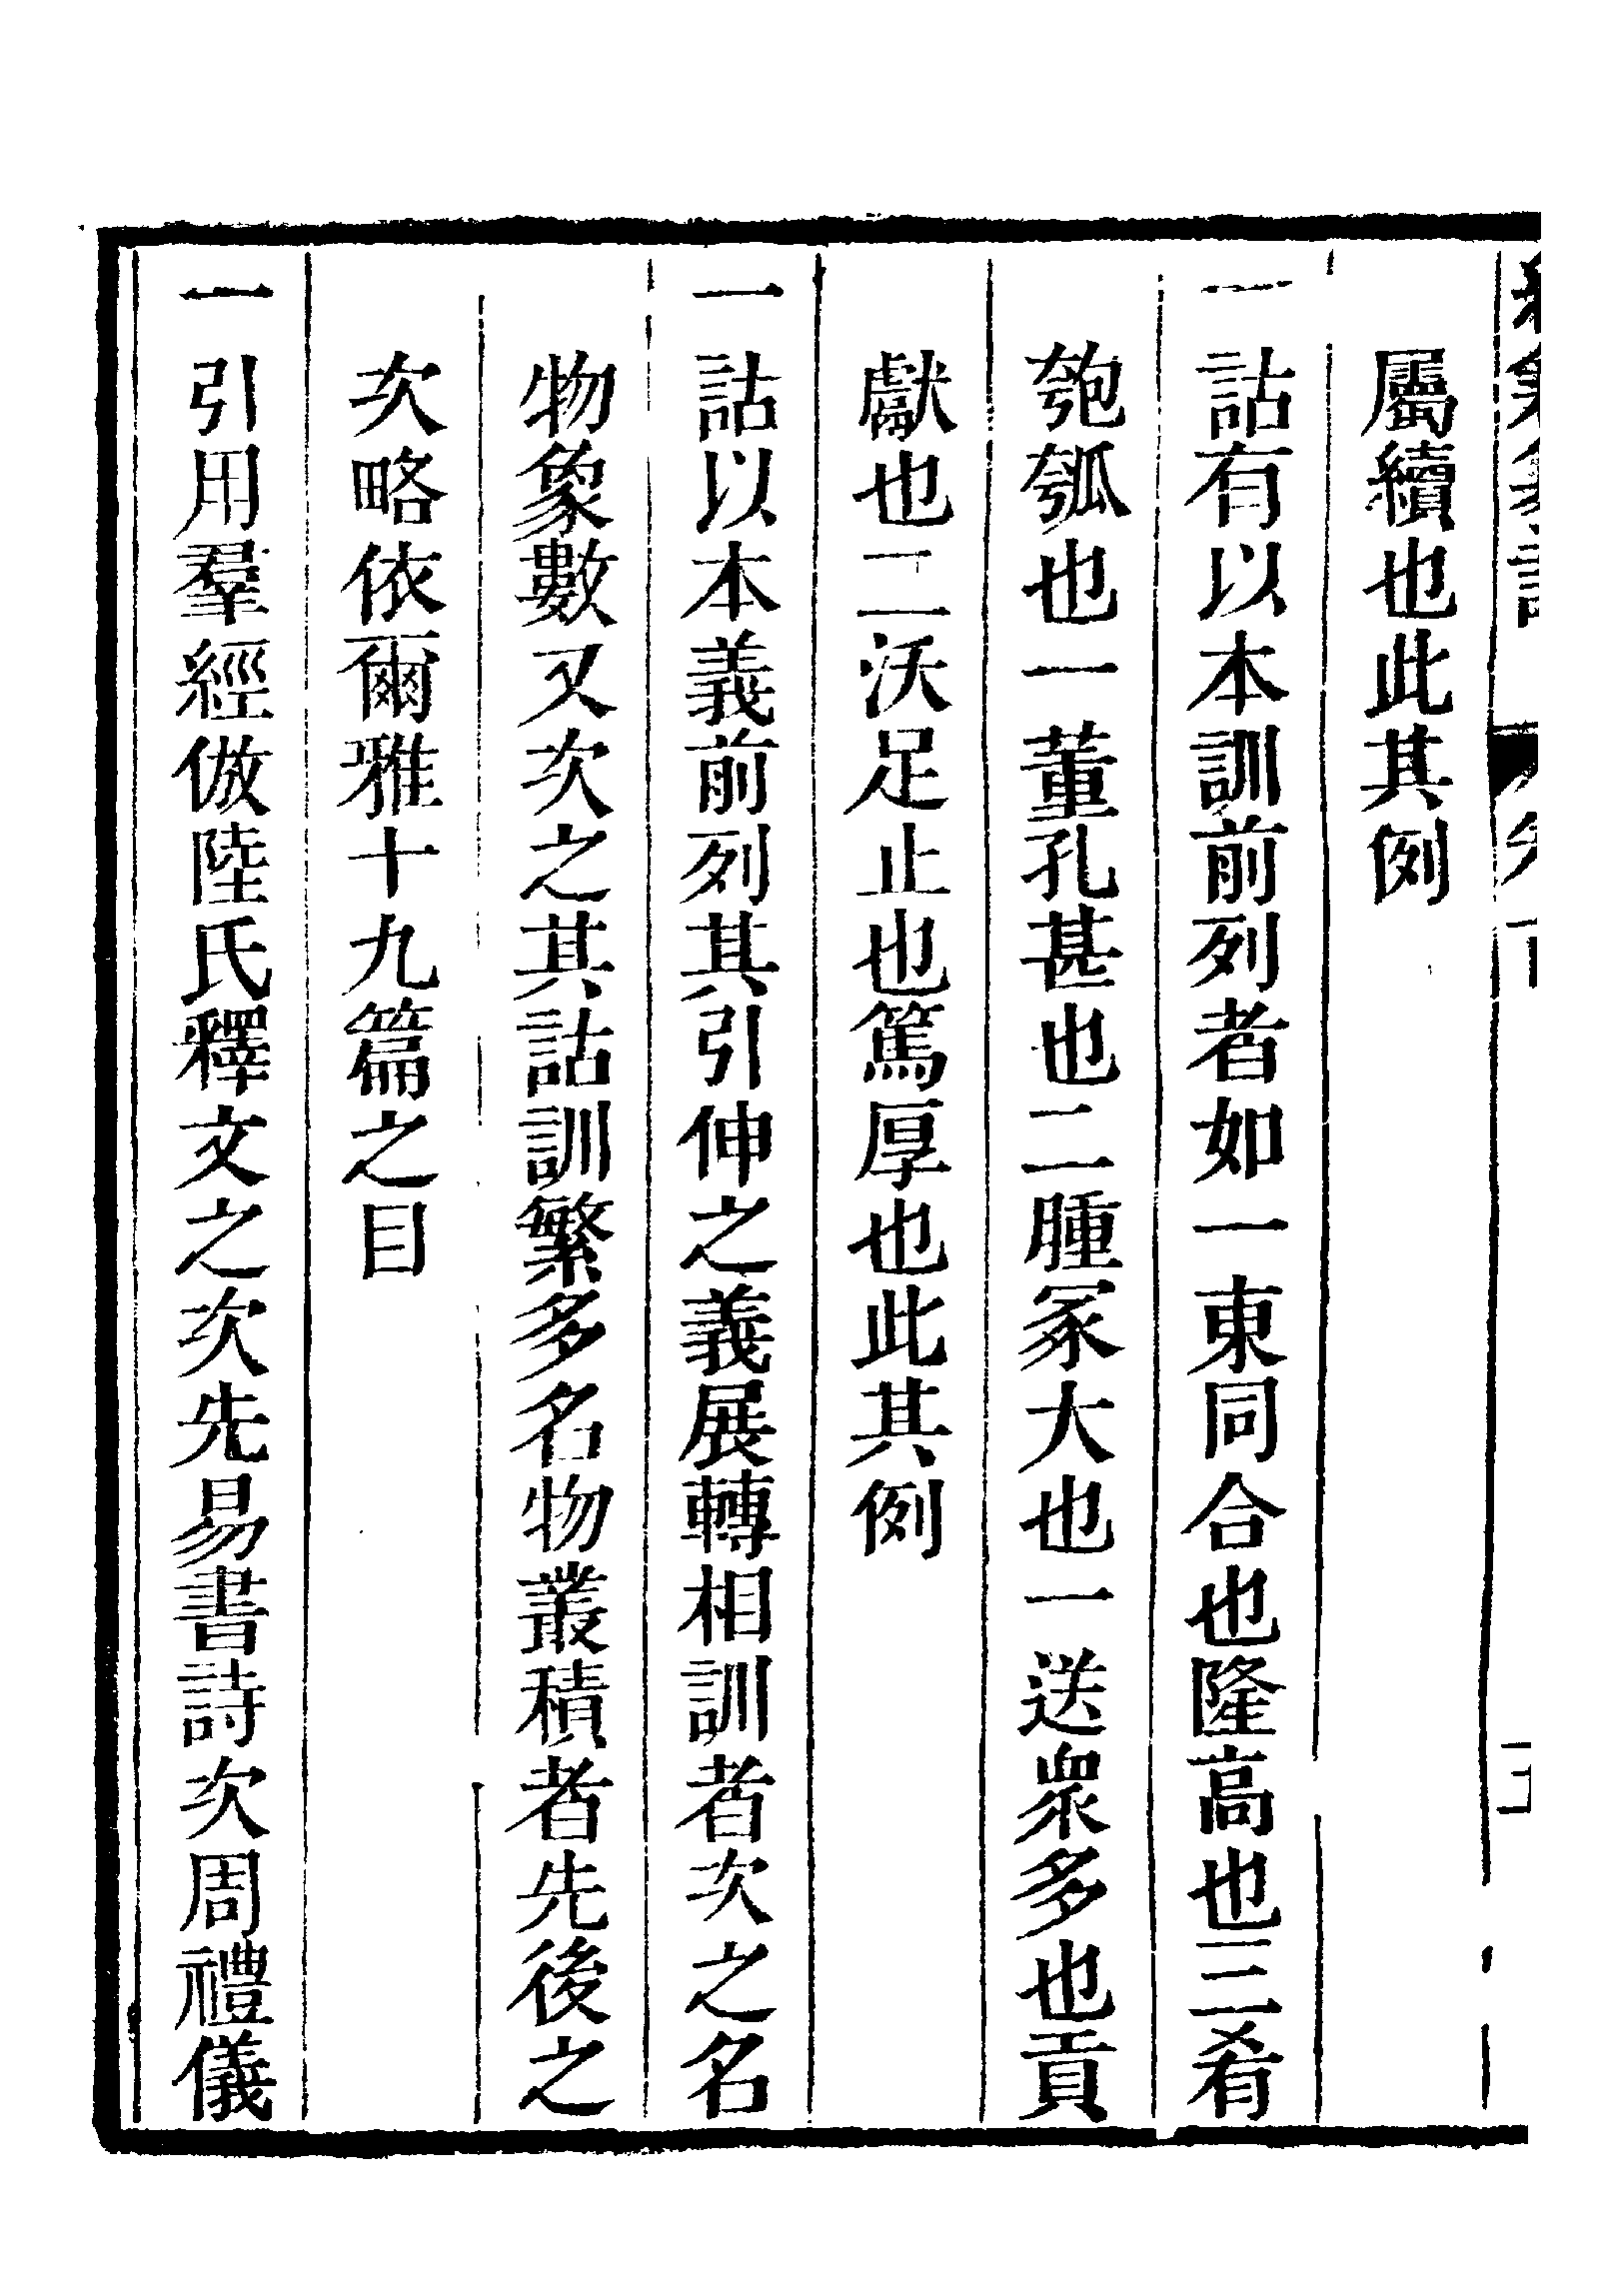 屬續也此其例
一詁有以本訓前列者如一東同合也隆高也三肴
匏瓠也一董孔甚也二腫冢大也一送衆多也貢
獻也二沃足止也篤厚也此其例
一詁以本義前列其引伸之義展轉相訓者次之名
物象數又次之其詁訓繁多名物叢積者先後之
次略依爾雅十九篇之目
一引用羣經倣陸氏釋文之次先易書詩次周禮儀